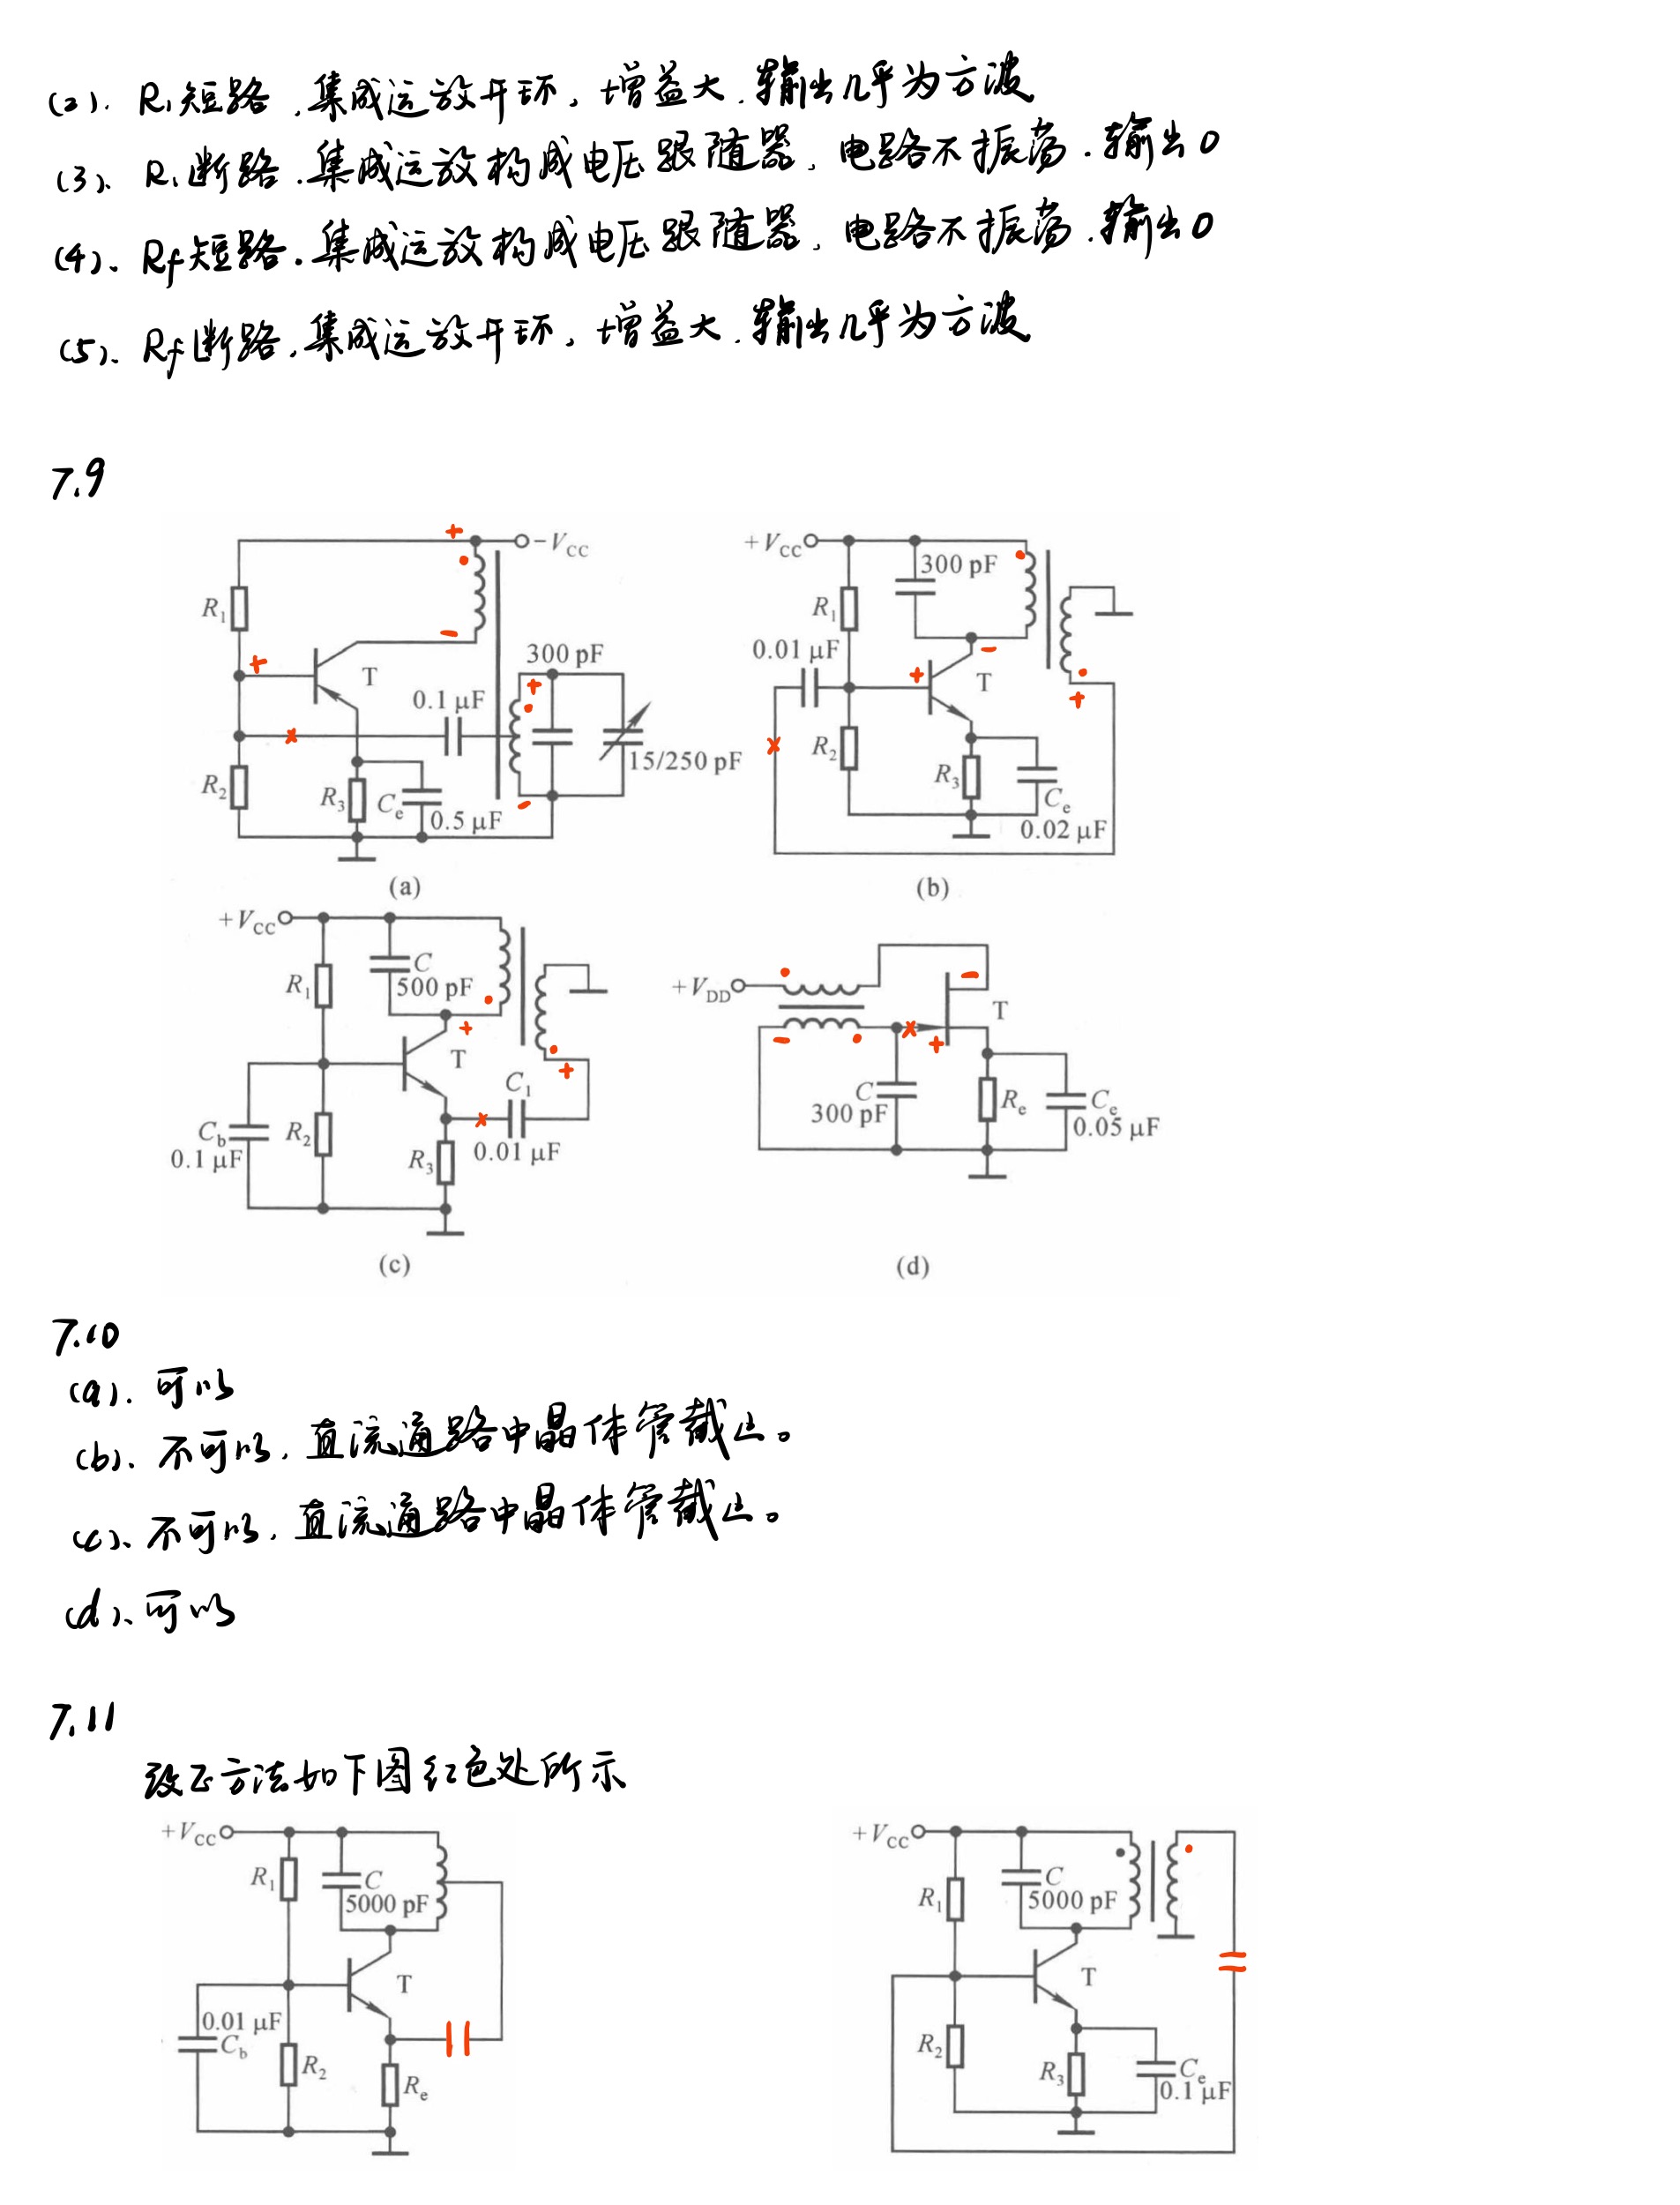 (2). R₁短路,集成运放开环,增益大.输出几乎为方波
(3)、R₁断路.集成运放构成电压跟随器,电路不振荡.输出0
(4)、Rf短路.集成运放构成电压跟随器,电路不振荡.输出0
(5)、Rf断路.集成运放开环,增益大.输出几乎为方波
7.9
+ −V_CC
R₁ − + T 300 pF
0.1 μF +
× 15/250 pF
R₂ R₃ C_e 0.5 μF −
(a)
+V_CC 300 pF
R₁
0.01 μF − + T +
× R₂ R₃ C_e
0.02 μF
(b)
+V_CC
R₁ C
500 pF
+ T +
C₁
×
C_b R₂ R₃ 0.01 μF
0.1 μF
(c)
+V_DD − T
− × +
C
300 pF R_e C_e
0.05 μF
(d)
7.10
(a). 可以
(b). 不可以,直流通路中晶体管截止。
(c)、不可以,直流通路中晶体管截止。
(d)、可以
7.11
改正方法如下图红色处所示
+V_CC
R₁ C
5000 pF
T
0.01 μF
C_b R₂ R_e
+V_CC
R₁ C
5000 pF
T
R₂ R₃ C_e
0.1 μF